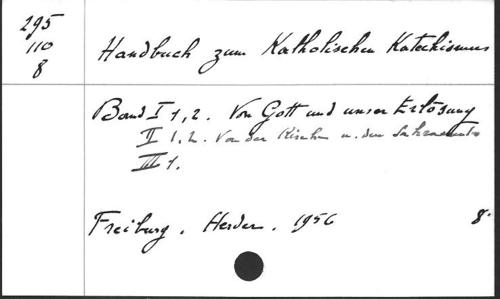 295
110
8
Handbuch zum Katholischen Katechismus
Band I 1, 2. Von Gott und unser Erlösung
II 1, 2. Von der Kirche u. den Sakramenten
III 1.
Freiburg. Herder. 1956 8°